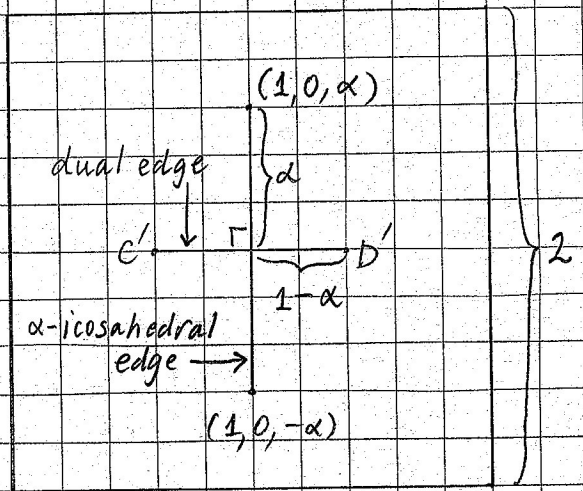 (1,0,α)
dual edge
α
C′
D′
2
1-α
α-icosahedral
edge
(1,0,-α)